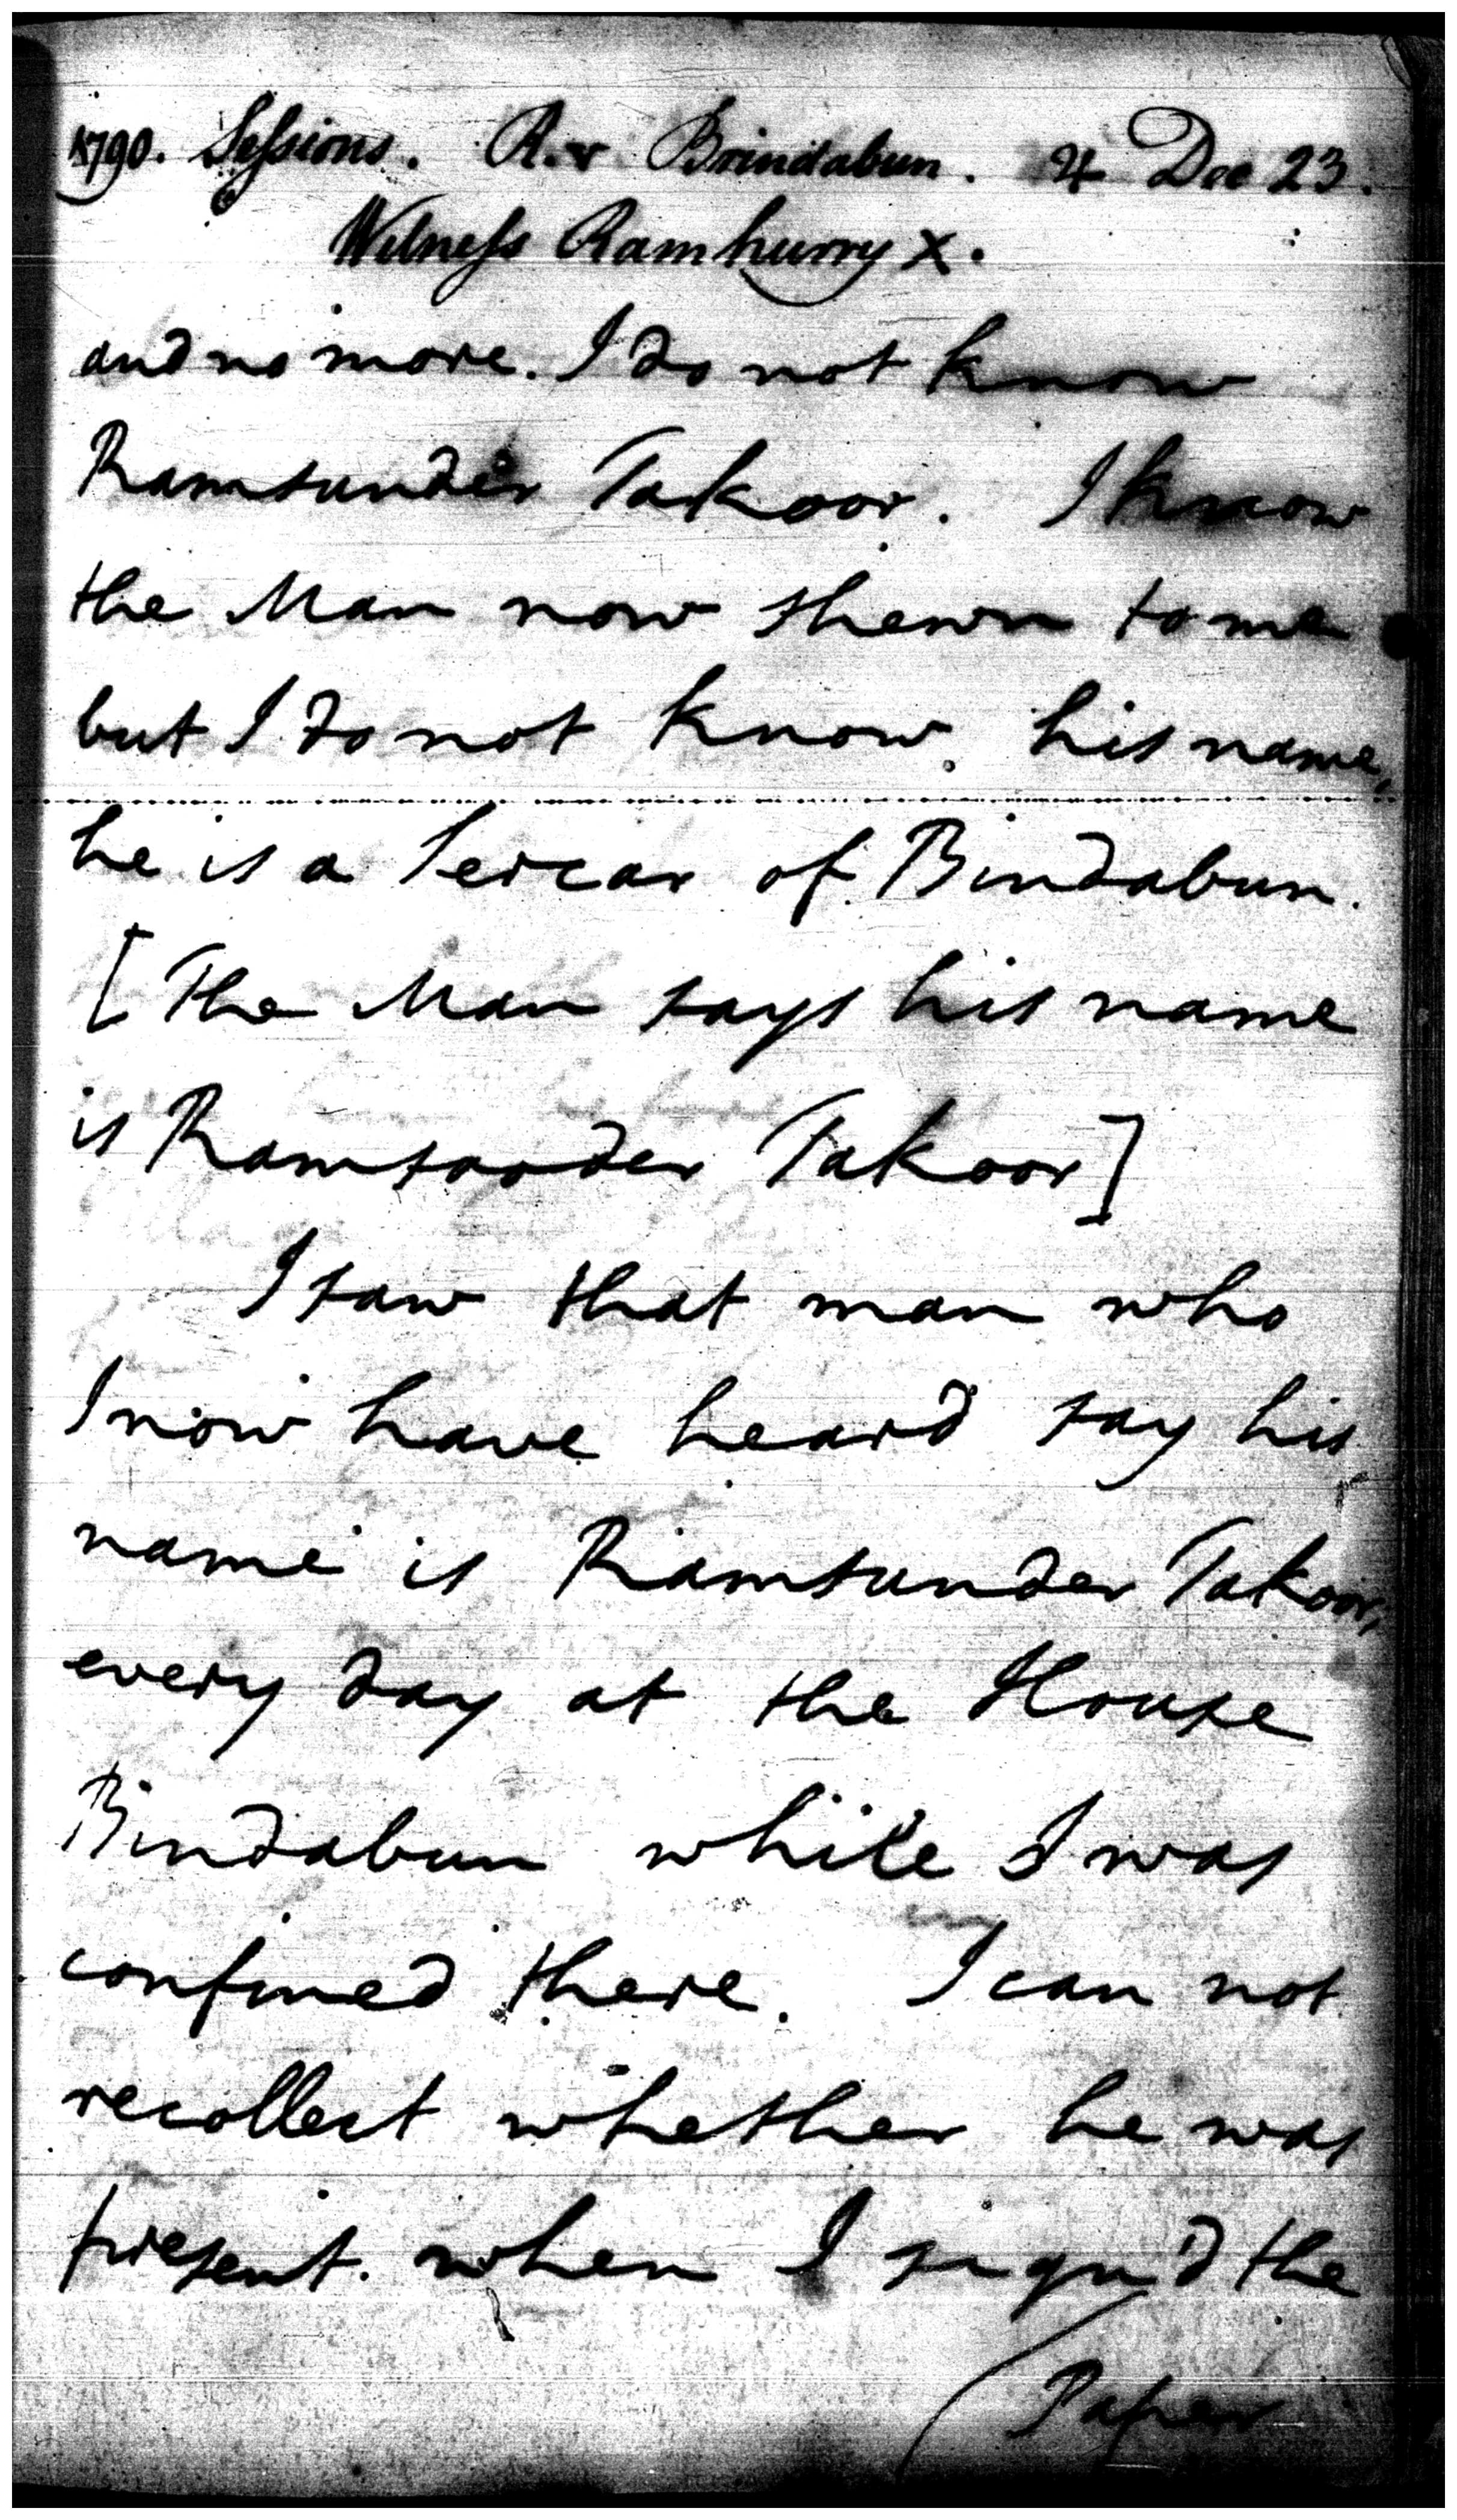 1790. Sessions. R. v Brindabun. 4 Dec 23.
Witness Ramhurry X.
and no more. I do not know
Ramsunder Takoor. I know
the Man now shewn to me
but I do not know his name,
he is a Sercar of Bindabun.
[The Man says his name
is Ramsooder Takoor]
I saw that man who
I now have heard say his
name is Ramsunder Takoor,
every day at the House
Bindabun while I was
confined there. I can not
recollect whether he was
present when I sign'd the
Paper